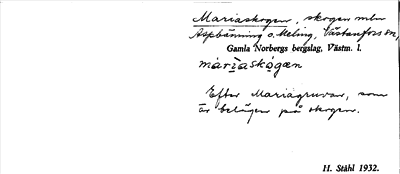 Mariaskogen, skogen mln
Aspbänning o. Meling, Västanfors sn,
Gamla Norbergs bergslag, Västm. l.
màrìaskógæn
Efter Mariagruvan, som
är belägen på skogen.
H. Ståhl 1932.